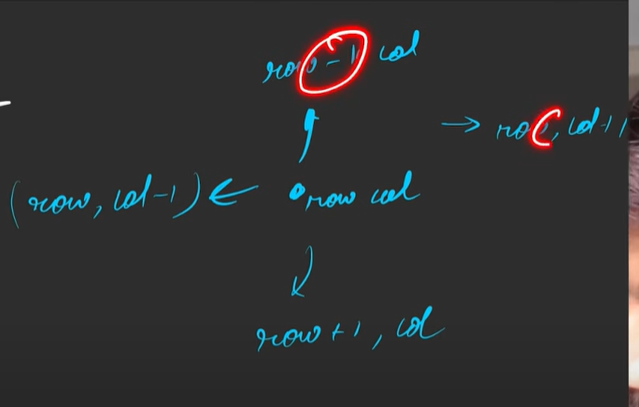 row-1 col
→ row, col+1
(row, col-1) ← • row col
row+1, col